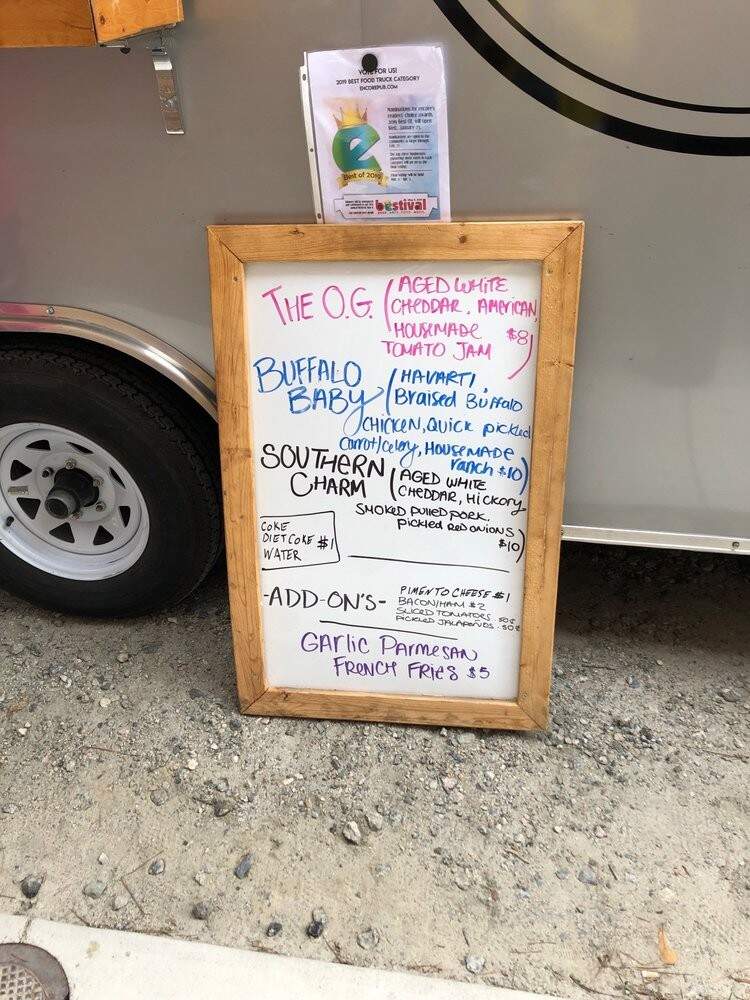 VOTE FOR US!
2019 BEST FOOD TRUCK CATEGORY
ENCOREPUB.COM
e
Best of 2019
bestival
THE O.G. (AGED WHITE
CHEDDAR, AMERICAN,
HOUSEMADE
TOMATO JAM $8)
BUFFALO
BABY (HAVARTI,
Braised Buffalo
CHICKEN, Quick pickled
carrot/celery, HOUSEMADE
ranch $10)
SOUTHERN
CHARM (AGED WHITE
CHEDDAR, Hickory
SMOKED PULLED PORK,
pickled RED ONIONS)
$10
COKE
DIET COKE $1
WATER
-ADD-ON'S-
PIMENTO CHEESE $1
BACON/HAM $2
SLICED TOMATOES .50¢
PICKLED JALAPEÑOS .50¢
GARlic PARMESAN
FRENCH FRIES $5